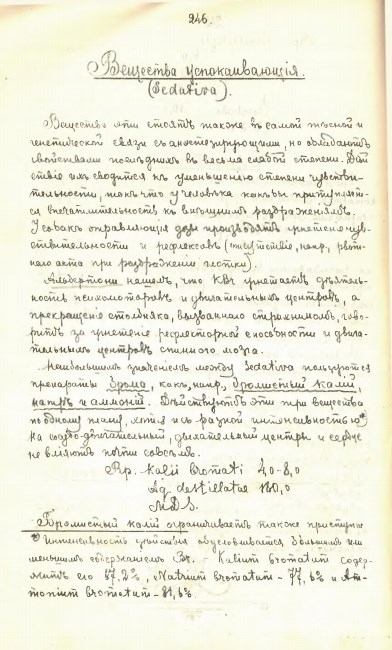 246.
Вещества успокаивающія.
(Sedativa).
Вещества эти стоятъ также въ самой тѣсной и
генетической связи съ анестезирующими, но обладаютъ
свойствами послѣднихъ въ весьма слабой степени. Дѣй
ствіе ихъ сводится къ уменьшенію степени чувстви-
тельности, такъ что у человѣка какъ бы притупляет-
ся впечатлительность къ внѣшнимъ раздраженіямъ.
У собакъ отравляющія дозы производятъ угнетеніе чув-
ствительности и рефлексовъ (отсутствіе, напр., рвот-
наго акта при раздраженіи глотки).
Альбертони нашелъ, что KBr угнетаетъ дѣятель-
ность психомоторн. и двигательныхъ центровъ, а
прекращеніе столбняка, вызваннаго стрихниномъ, гово-
ритъ за угнетеніе рефлекторной способности и двига-
тельныхъ центровъ спинного мозга.
Наибольшимъ значеніемъ между Sedativa пользуются
препараты брома, какъ, напр., бромистый калій,
натръ и аммоній. Дѣйствуютъ эти три вещества
по одному плану, хотя и съ разной интенсивностью*)
На сосудо-двигательный, дыхательный центры и сердце
не вліяютъ почти совсѣмъ.
Rp. Kalii bromati 4,0-8,0
Aq. destillatae 180,0
MDS.
Бромистый калій ограничиваетъ также приступы
*) Интенсивность дѣйствія обусловливается большимъ или
меньшимъ содержаніемъ Br. - Kalium bromatum содер-
житъ его 67,2%, Natrium bromatum - 77,6% и Am-
monium bromatum - 81,6%